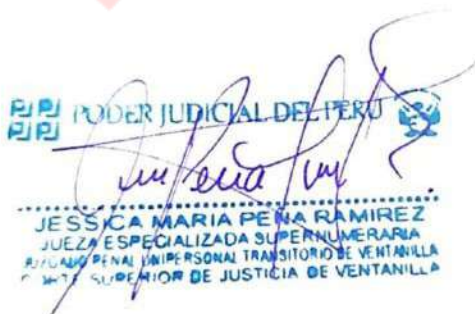 PJ PJ PODER JUDICIAL DEL PERU
PJ PJ
JESSICA MARIA PEÑA RAMIREZ
JUEZA ESPECIALIZADA SUPERNUMERARIA
JUZGADO PENAL UNIPERSONAL TRANSITORIO DE VENTANILLA
CORTE SUPERIOR DE JUSTICIA DE VENTANILLA